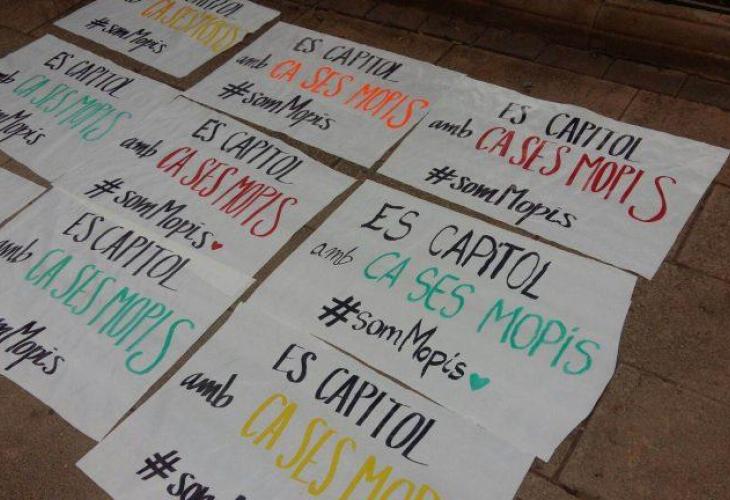 amb CA SES MOPIS
#somMopis
ES CAPITOL
amb CA SES MOPIS
#somMopis
ES CAPITOL
amb CA SES MOPIS
#somMopis
ES CAPITOL
CA SES MOPIS
Mopis
ES CAPITOL
amb CA SES MOPIS
#somMopis
ES CAPITOL
amb CA SES MOPIS
#somMopis
ES CAPITOL
amb CA SES MOPIS
somMopis
ES CAPITOL
amb CA SES MOP
#som